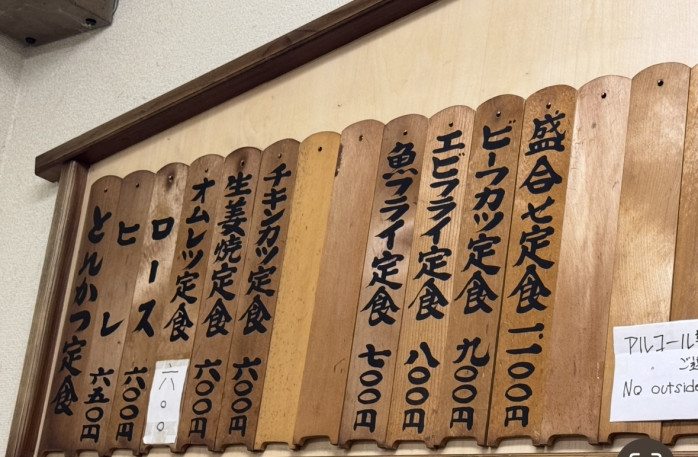 盛合せ定食 一、一〇〇円
ビーフカツ定食 九〇〇円
エビフライ定食 八〇〇円
魚フライ定食 七〇〇円
チキンカツ定食 六〇〇円
生姜焼定食 六〇〇円
オムレツ定食 六〇〇
ロース 六〇〇円
ヒレ 六五〇円
とんかつ定食
アルコール
ご
No outside